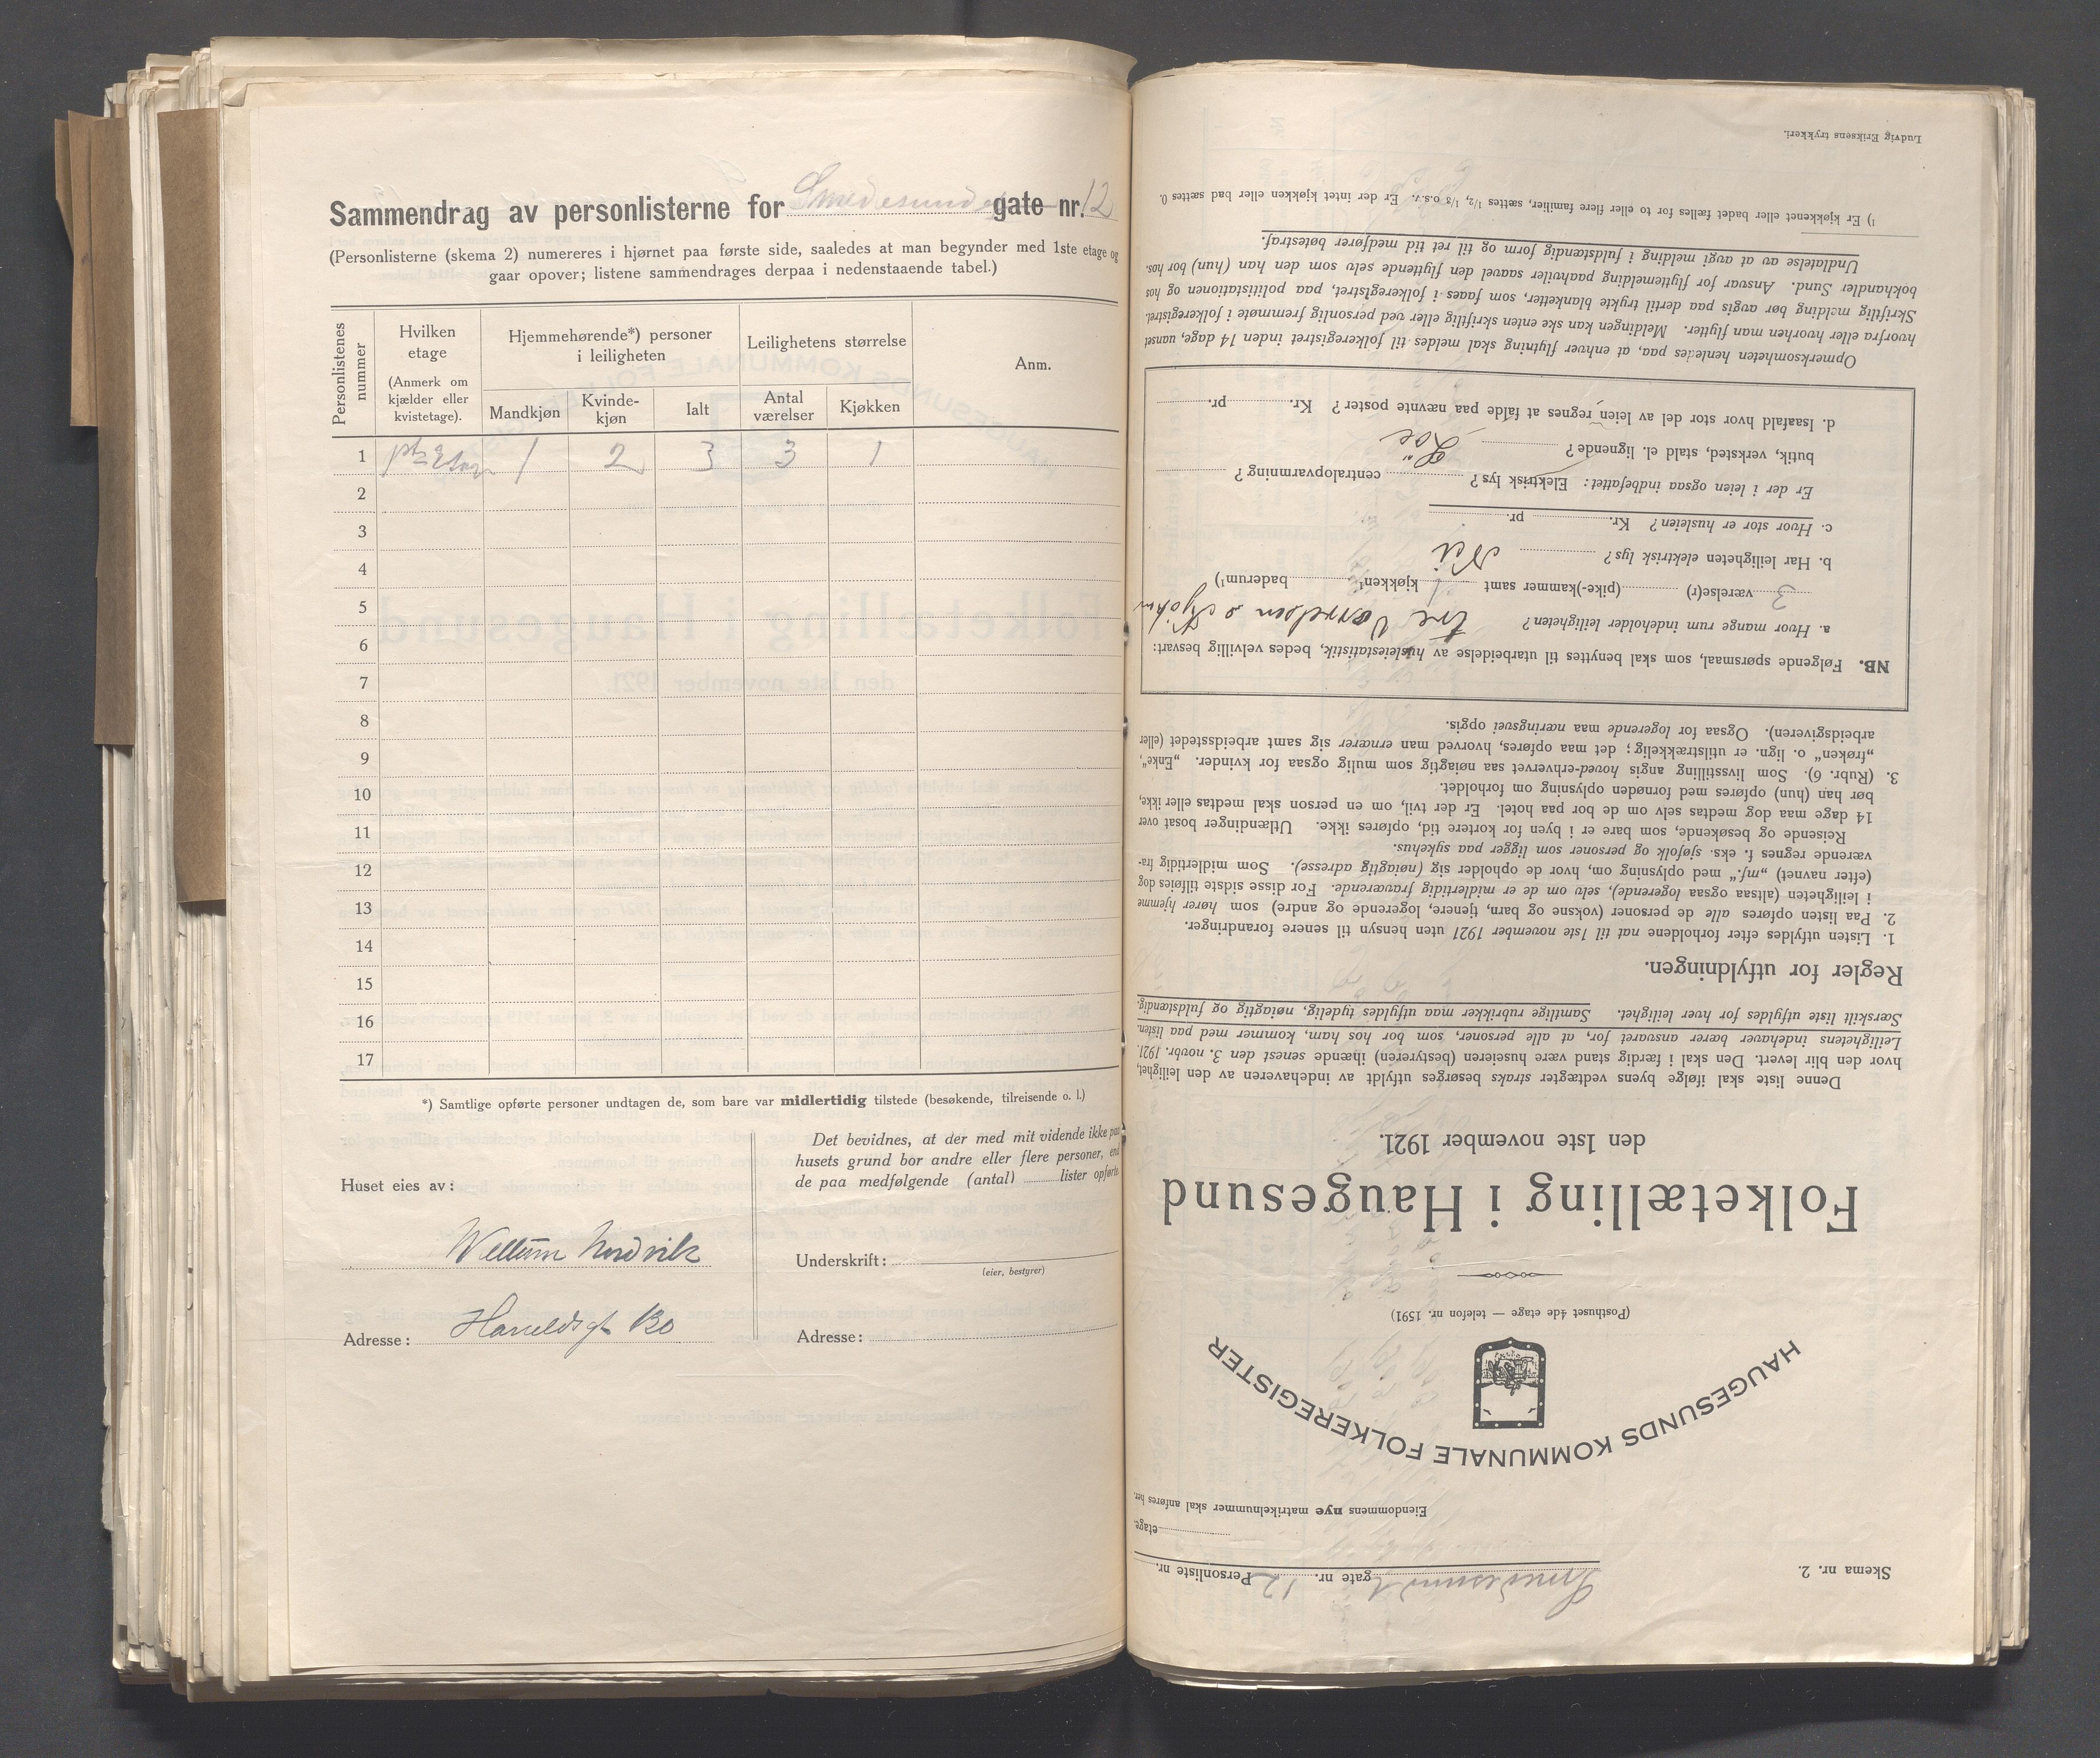 Sammendrag av personlisterne for Smedesunds gate nr. 12
(Personlisterne (skema 2) numereres i hjørnet paa første side, saaledes at man begynder med 1ste etage og
gaar opover; listene sammendrages derpaa i nedenstaaende tabel.)
Personlistenes nummer
Hvilken etage
(Anmerk om kjælder eller kvistetage).
Hjemmehørende*) personer i leiligheten
Leilighetens størrelse
Anm.
Mandkjøn
Kvindekjøn
Ialt
Antal værelser
Kjøkken
1 1 2 3 3 1
2
3
4
5
6
7
8
9
10
11
12
13
14
15
16
17
*) Samtlige opførte personer undtagen de, som bare var midlertidig tilstede (besøkende, tilreisende o. l.)
Huset eies av:
Nordvik
Adresse: Haraldsgt
Det bevidnes, at der med mit vidende ikke paa
husets grund bor andre eller flere personer, end
de paa medfølgende (antal) lister opførte.
Underskrift:
(eier, bestyrer)
Adresse:
Skema nr. 2.
Smedesund gate nr. 12 Personliste nr.
etage.
Eiendommens nye matrikelnummer skal anføres her.
HAUGESUNDS KOMMUNALE FOLKEREGISTER
(Posthuset 4de etage — telefon nr. 1591)
Folketælling i Haugesund
den 1ste november 1921.
Denne liste skal ifølge byens vedtægter straks besørges utfyldt av indehaveren av den leilighet,
hvor den blir levert. Den skal i færdig stand være huseieren (bestyreren) ihænde senest den 3. novbr. 1921.
Leilighetens indehaver bærer ansvaret for, at alle personer, som bor hos ham, kommer med paa listen.
Særskilt liste utfyldes for hver leilighet. Samtlige rubrikker maa utfyldes tydelig, nøiagtig og fuldstændig.
Regler for utfyldningen.
1. Listen utfyldes efter forholdene nat til 1ste november 1921 uten hensyn til senere forandringer.
2. Paa listen opføres alle de personer (voksne og barn, tjenere, logerende og andre) som hører hjemme
i leiligheten (altsaa ogsaa logerende), selv om de er midlertidig fraværende. For disse sidste tilføies dog
(efter navnet) „mf.“ med oplysning om, hvor de opholder sig (nøiagtig adresse). Som midlertidig fra-
værende regnes f. eks. sjøfolk og personer som ligger paa sykehus.
Reisende og besøkende, som bare er i byen for kortere tid, opføres ikke. Utlændinger bosat over
14 dage maa dog medtas selv om de bor paa hotel. Er der tvil, om en person skal medtas eller ikke,
bør han (hun) opføres med fornøden oplysning om forholdet.
3. (Rubr. 6). Som livsstilling angis hoved-erhvervet saa nøiagtig som mulig ogsaa for kvinder. „Enke“,
„frøken“ o. lign. er utilstrækkelig; det maa opføres, hvorved man ernærer sig samt arbeidsstedet (eller
arbeidsgiveren). Ogsaa for logerende maa næringsvei opgis.
NB. Følgende spørsmaal, som skal benyttes til utarbeidelse av husleiestatistik, bedes velvillig besvart:
a. Hvor mange rum indeholder leiligheten? tre
3 værelse(r) (pike-)kammer samt 1 kjøkken¹ baderum¹)
b. Har leiligheten elektrisk lys? Nei
c. Hvor stor er husleien? Kr. pr.
Er der i leien ogsaa indbefattet: Elektrisk lys? centralopvarmning?
butik, verksted, stald el. lignende?
d. Isaafald hvor stor del av leien regnes at falde paa nævnte poster? Kr. pr.
Opmerksomheten henledes paa, at enhver flytning skal meldes til folkeregistret inden 14 dage, uanset
hvorfra eller hvorhen man flytter. Meldingen kan ske enten skriftlig eller ved personlig fremmøte i folkeregistret.
Skriftlig melding bør avgis paa dertil trykte blanketter, som faaes i folkeregistret, paa politistationen og hos
bokhandler Sund. Ansvar for flyttemelding paahviler saavel den flyttende selv som den han (hun) bor hos.
Undlatelse av at avgi melding i fuldstændig form og til ret tid medfører bøtestraf.
¹) Er kjøkkenet eller badet fælles for to eller flere familier, sættes ¹/₂, ¹/₃ o.s.v. Er der intet kjøkken eller bad sættes 0.
Ludvig Eriksens trykkeri.